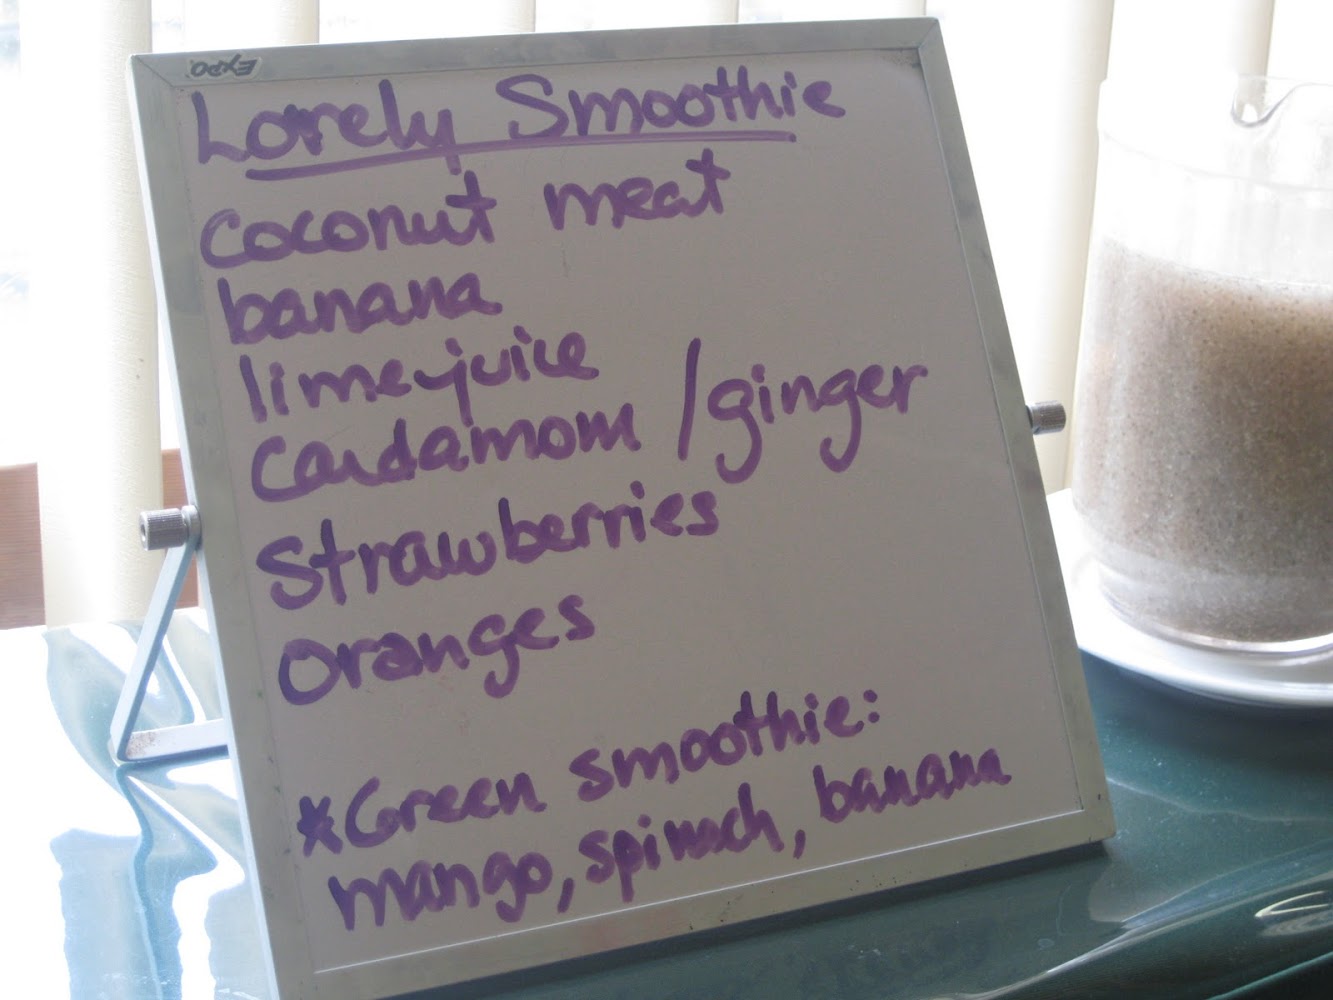 EXPO
Lovely Smoothie
coconut meat
banana
lime juice
Cardamom /ginger
Strawberries
Oranges
*Green smoothie:
mango, spinach, banana